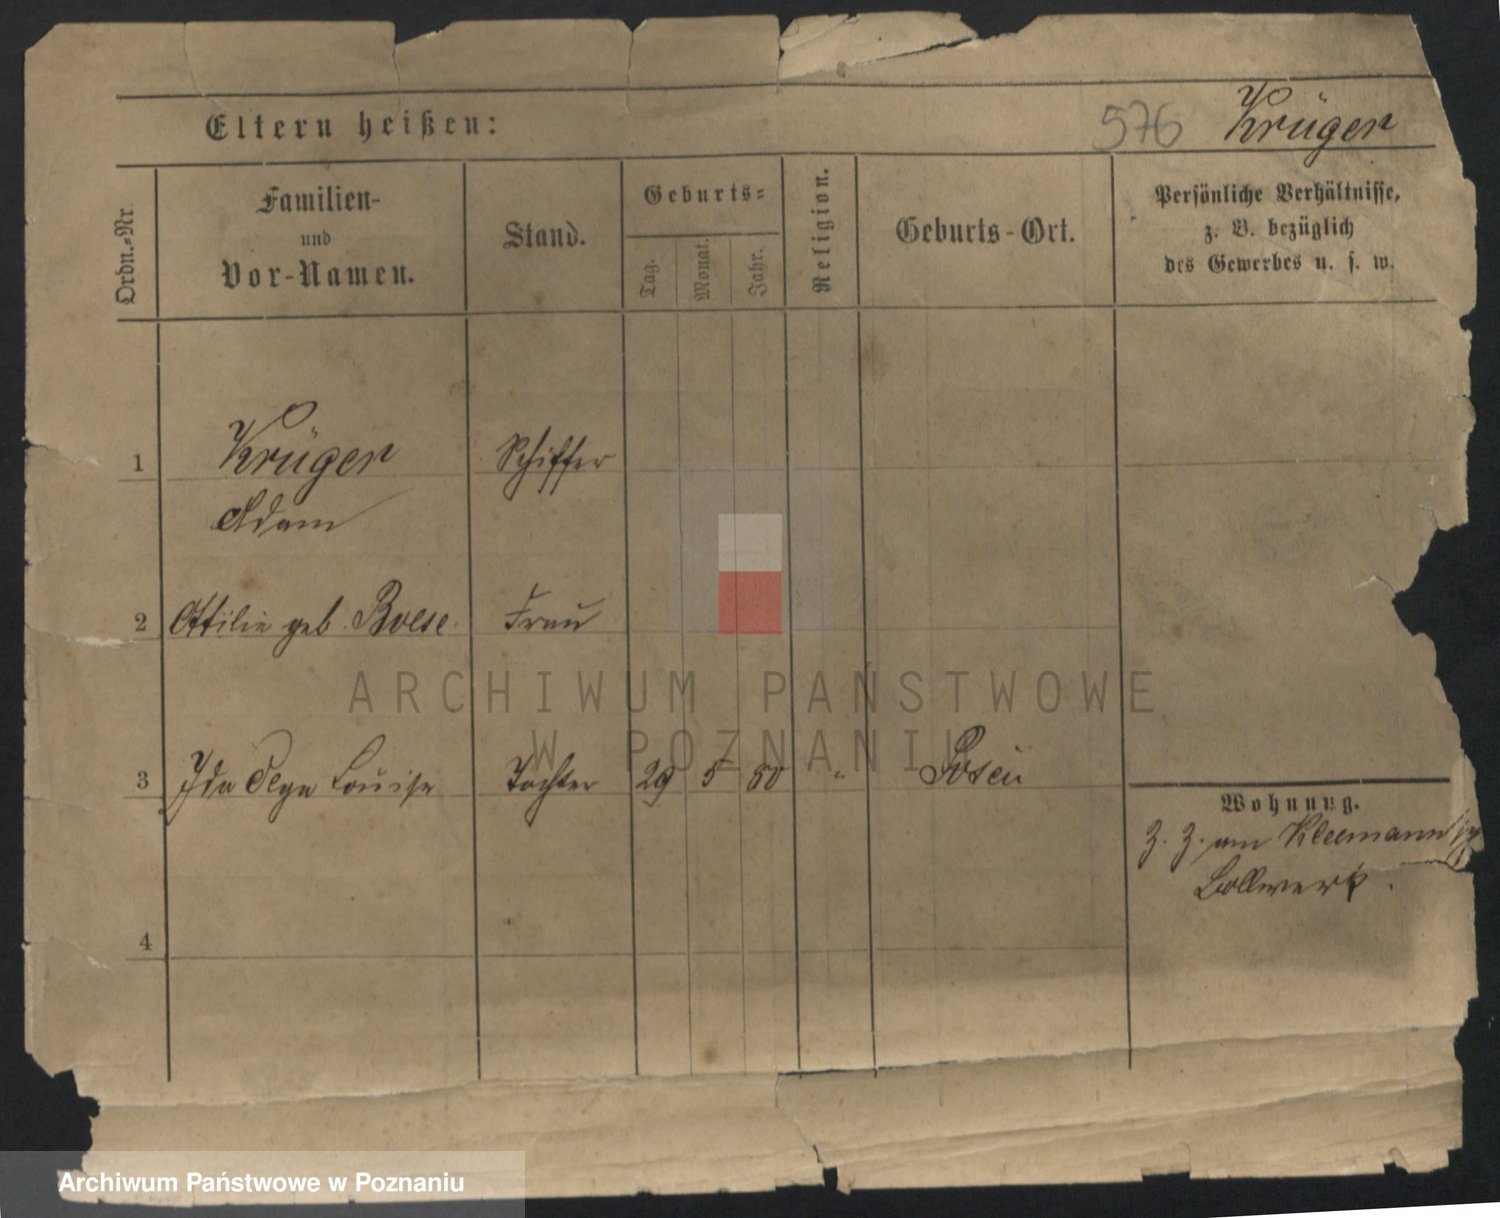 Eltern heißen:
576
Krüger
Ordn.=Nr.
Familien-
und
Vor-Namen.
Stand.
Geburts=
Tag.
Monat.
Jahr.
Religion.
Geburts-Ort.
Persönliche Verhältnisse,
z. B. bezüglich
des Gewerbes u. s. w.
1
Krüger
Schiffer
Adam
2
Ottilie geb. Boese.
Frau
3
Ida Olga Louise
Tochter
29
5
80
"
Posen
Wohnung.
z. Z. am Kleemann
Bollwerk.
4
ARCHIWUM PAŃSTWOWE
W POZNANIU
Archiwum Państwowe w Poznaniu